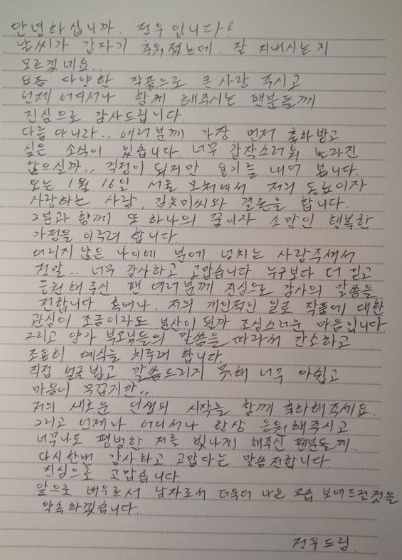 안녕하십니까. 정우입니다!
날씨가 갑자기 추워졌는데. 잘 지내시는지
모르겠네요..
다양한 작품으로 큰 사랑 주시고
언제 어디서나 함께 해주시는 팬분들께
진심으로 감사드립니다
다름 아니라.. 여러분께 가장 먼저 축하받고
싶은 소식이 있습니다 너무 갑작스러워 놀라진
않으실까.. 걱정이 되지만 용기를 내어 봅니다.
오는 1월 16일 서울 모처에서 저의 동료이자
사랑하는 사람, 김유미씨와 결혼을 합니다.
그분과 함께 또 하나의 꿈이자 소망인 행복한
가정을 이루려 합니다
어리지 않은 나이에 복에 넘치는 사랑주셔서
정말.. 너무 감사하고 고맙습니다. 누구보다 더 믿고
응원해주신 팬 여러분께 진심으로 감사의 말씀을
전합니다. 혹여나, 저의 개인적인 일로 작품에 대한
관심이 조금이라도 분산이 될까 조심스러운 마음입니다
그리고 양가 부모님들의 말씀을 따라서 간소하고
조용히 예식을 치루려 합니다.
직접 얼굴뵙고 말씀드리지 못해 너무 아쉽고
마음이 무겁게만..
저의 새로운 인생의 시작을 함께 축하해주세요.
그리고 언제나 어디서나 항상 응원해주시고
너무나도 평범한 저를 빛나게 해주신 팬분들께..
다시한번 감사하고 고맙다는 말씀 전합니다
진심으로 고맙습니다
앞으로 배우로서 남자로서 더욱더 나은 모습 보여드릴것을
약속하겠습니다.
정우드림.